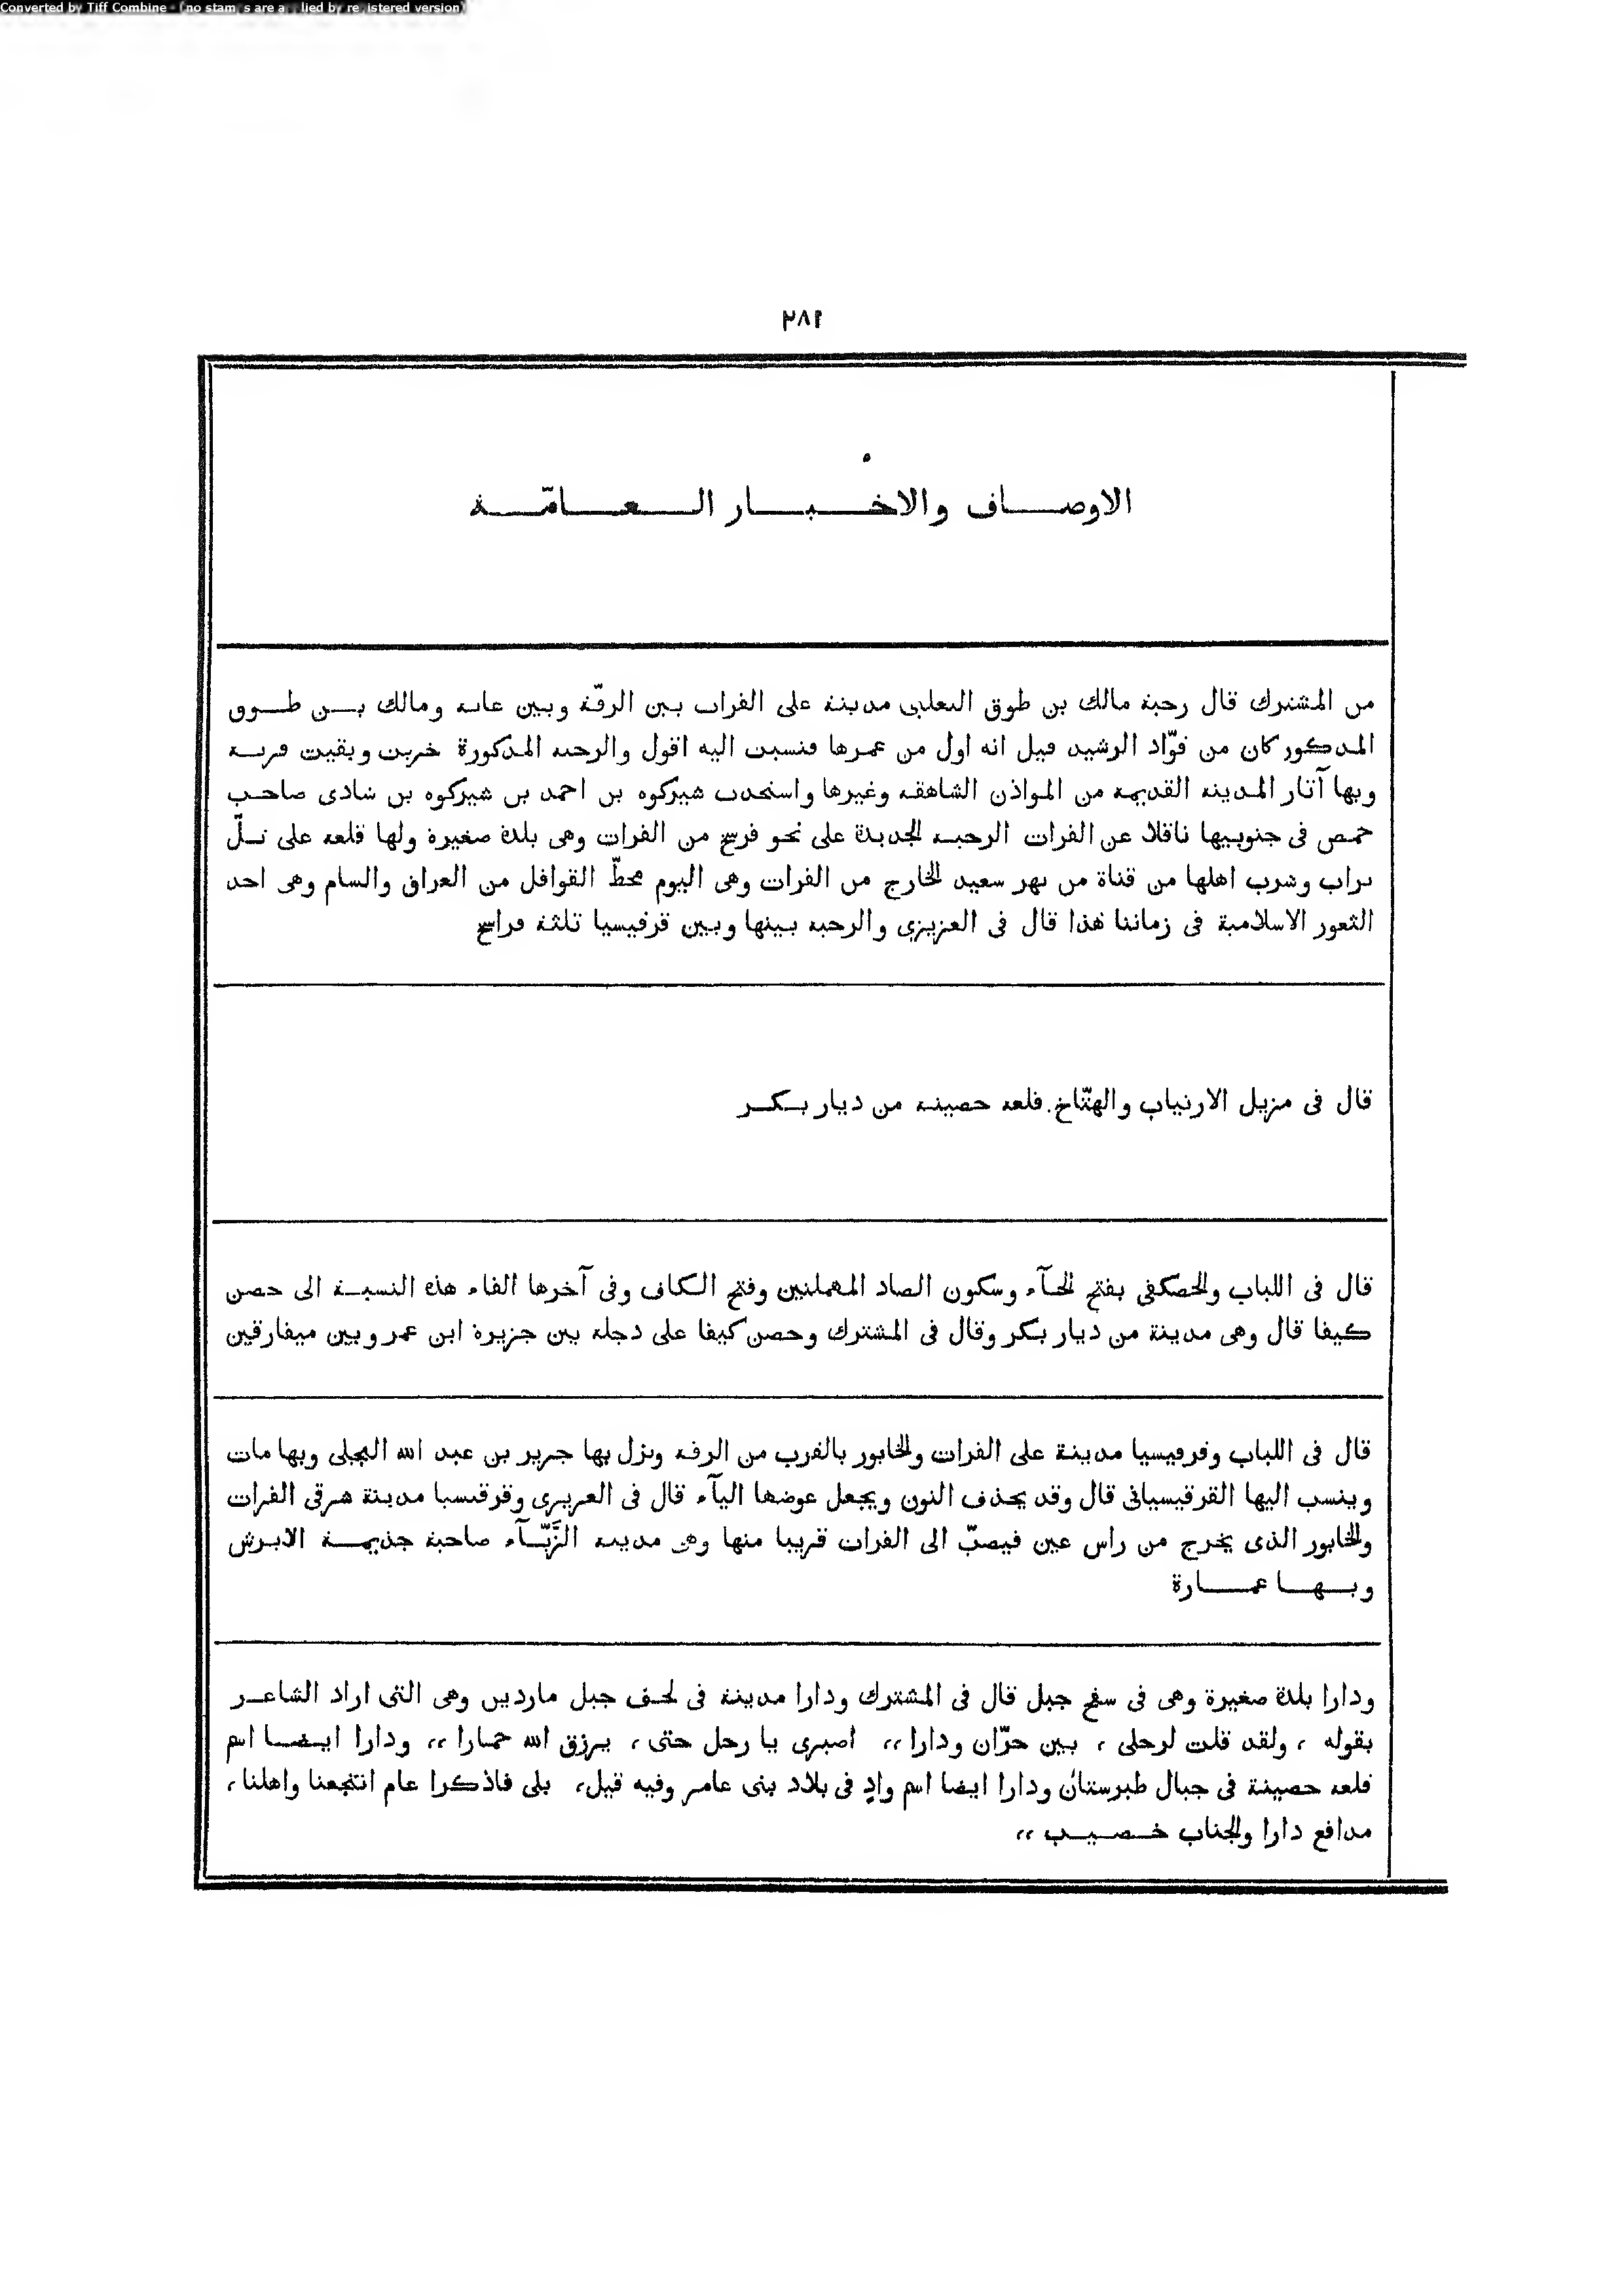 Converted by Tiff Combine - (no stamps are applied by registered version)
٢٨١
الاوصاف والاخبار العامّة
من المشترك قال رحبة مالك بن طوق التغلبى مدينة على الفرات بين الرقّة وبين عانه ومالك بن طوق
المذكور كان من قوّاد الرشيد قيل انه اول من عمرها فنسبت اليه اقول والرحبه المذكورة خربت وبقيت قرية
وبها آثار المدينه القديمه من المواذن الشاهقه وغيرها واستحدث شيركوه بن احمد بن شيركوه بن شادى صاحب
حمص فى جنوبيها ناقلا عن الفرات الرحبه الجديدة على نحو فرسخ من الفرات وهى بلدة صغيرة ولها قلعه على تلّ
تراب وشرب اهلها من قناة من نهر سعيد الخارج من الفرات وهى اليوم محطّ القوافل من العراق والشام وهى احد
الثغور الاسلامية فى زماننا هذا قال فى العزيزى والرحبه بينها وبين قرقيسيا ثلثة فراسخ
قال فى مزيل الارتياب والهتّاخ قلعه حصينه من ديار بكر
قال فى اللباب والحصكفى بفتح الحآء وسكون الصاد المهملتين وفتح الكاف وفى آخرها الفاء هذه النسبة الى حصن
كيفا قال وهى مدينة من ديار بكر وقال فى المشترك وحصن كيفا على دجلة بين جزيرة ابن عمر وبين ميفارقين
قال فى اللباب وقرقيسيا مدينة على الفرات والخابور بالقرب من الرقه ونزل بها جرير بن عبد الله البجلى وبها مات
وينسب اليها القرقيسيانى قال وقد يحذف النون ويجعل عوضها اليآء قال فى العزيزى وقرقيسيا مدينة شرقى الفرات
والخابور الذى يخرج من راس عين فيصبّ الى الفرات قريبا منها وهى مدينه الزَّبّآء صاحبة جذيمة الابرش
وبها عمارة
ودارا بلدة صغيرة وهى فى سفح جبل قال فى المشترك ودارا مدينة فى لحف جبل ماردين وهى التى اراد الشاعر
بقوله ، ولقد قلت لرحلى ، بين حرّان ودارا ،، اصبرى يا رحل حتى ، يرزق الله حمارا ،، ودارا ايضا اسم
قلعه حصينة فى جبال طبرستان ودارا ايضا اسم وادٍ فى بلاد بنى عامر وفيه قيل، بلى فاذكرا عام انتجعنا واهلنا ،
مدافع دارا والجناب خصيب ،،